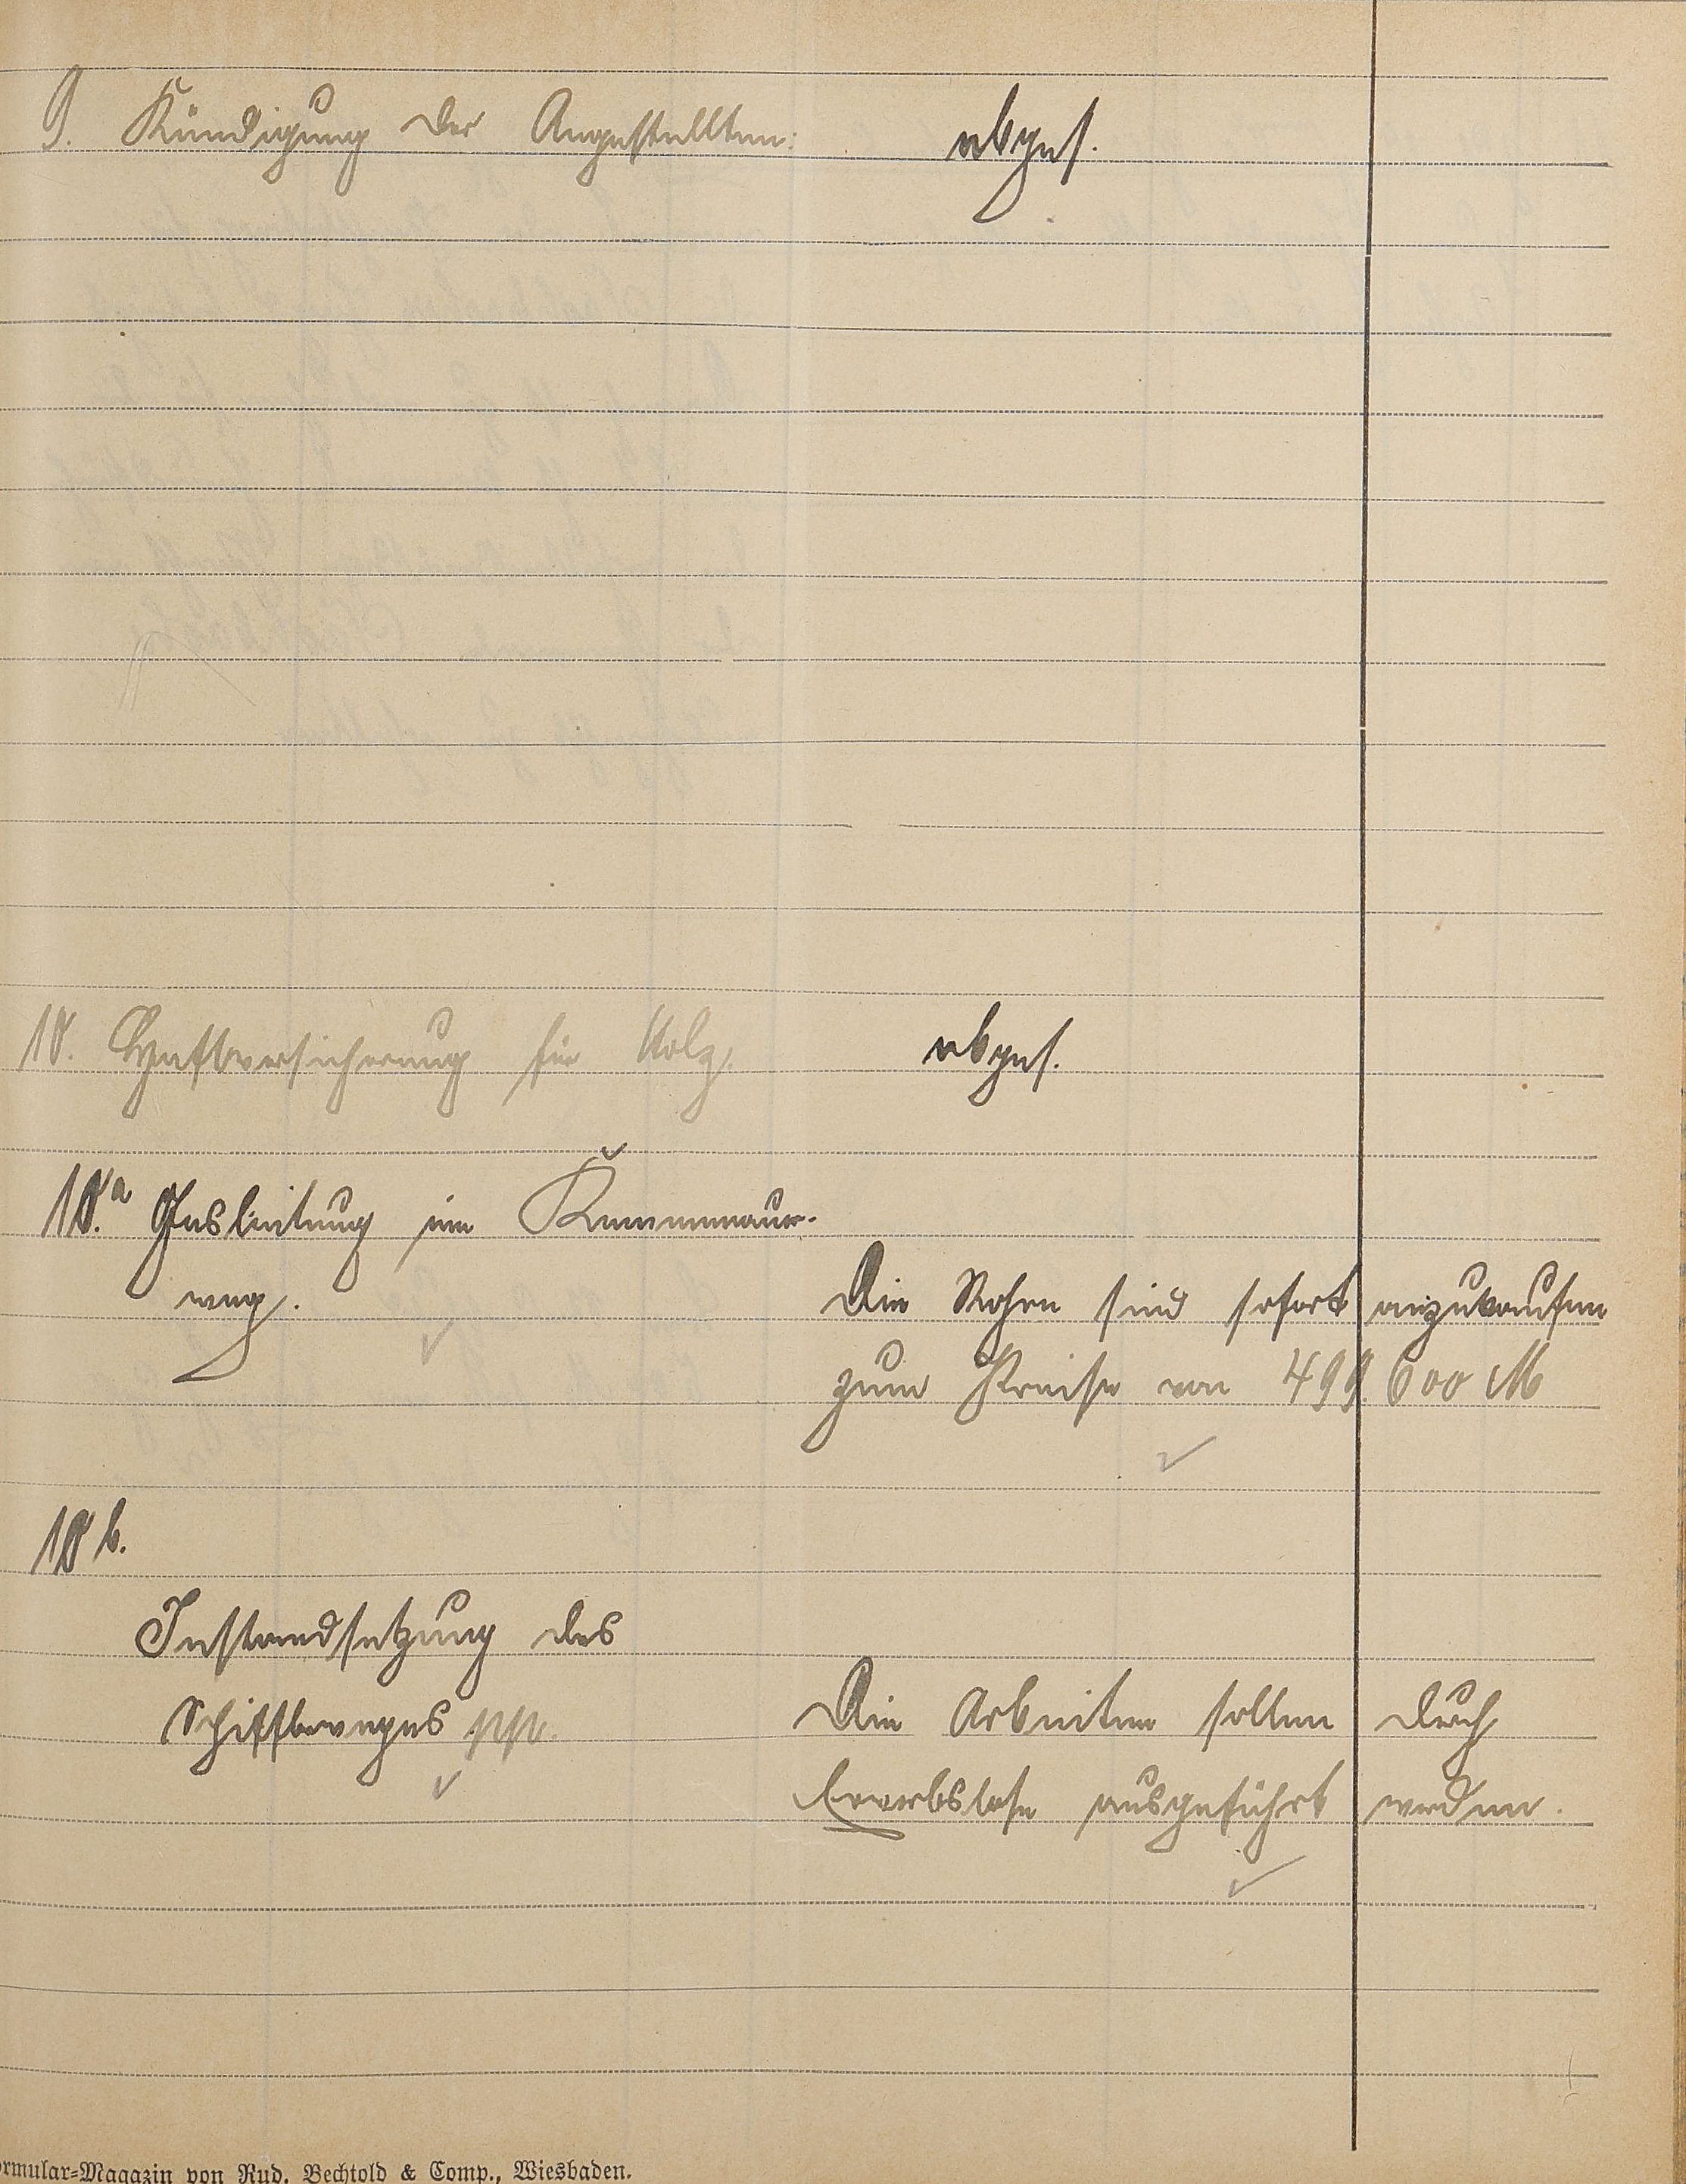 9. Kündigung der Angestellten: abges.
10. Haftversicherung für Holz. abges.
10.a Gasleitung im
weg.
Die Rohre sind sofort anzukaufen
zum Preise von 499 600 M
10 b.
Instandsetzung des
Schiffbergweges pp. Die Arbeiten sollen durch
Erwerbslose ausgeführt werden.
ormular-Magazin von Rud. Bechtold & Comp., Wiesbaden.